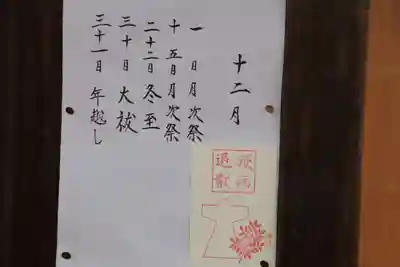 十二月
一日月次祭
十五日月次祭
二十二日冬至
三十日大祓
三十一日年越し
疫病
退散